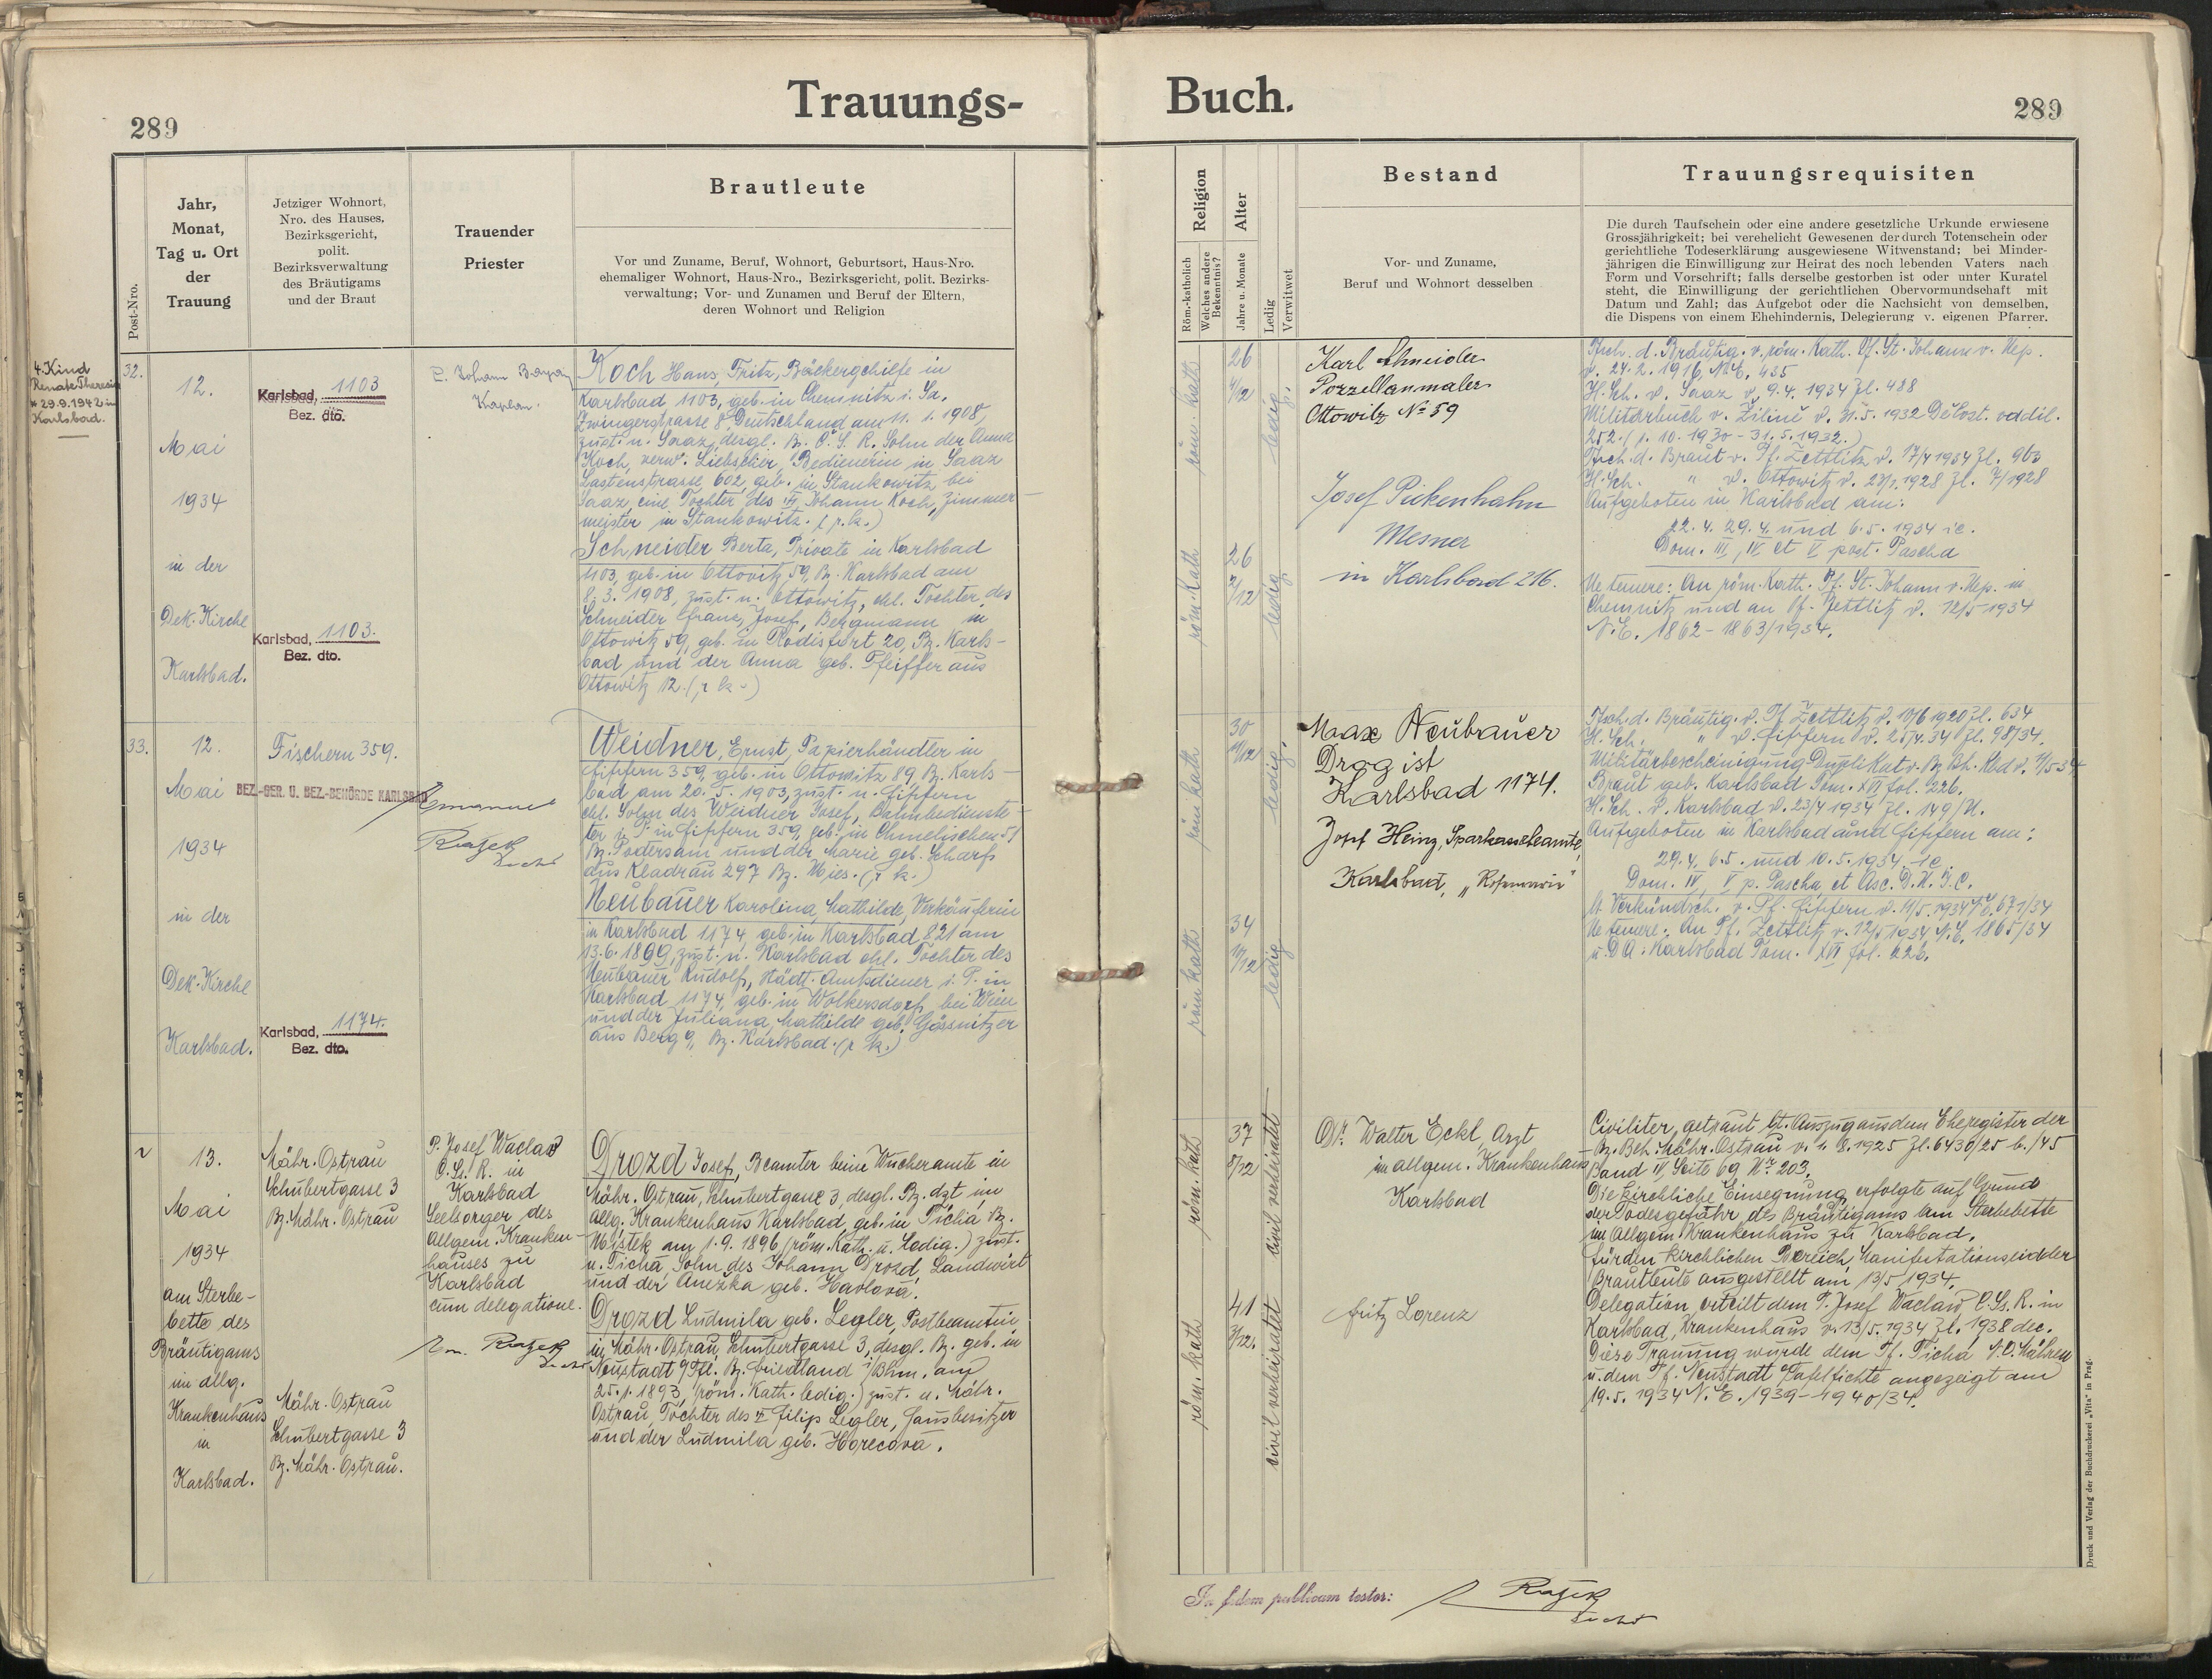 Trauungs-
Buch.
289
289
Post-Nro.
Jahr,
Monat,
Tag u. Ort
der
Trauung
Jetziger Wohnort,
Nro. des Hauses,
Bezirksgericht,
polit.
Bezirksverwaltung
des Bräutigams
und der Braut
Trauender
Priester
Brautleute
Vor und Zuname, Beruf, Wohnort, Geburtsort, Haus-Nro.
ehemaliger Wohnort, Haus-Nro., Bezirksgericht, polit. Bezirks-
verwaltung; Vor- und Zunamen und Beruf der Eltern,
deren Wohnort und Religion
Religion
Röm.-katholisch
Welches andere
Bekenntnis?
Alter
Jahre u. Monate
Ledig
Verwitwet
Bestand
Vor- und Zuname,
Beruf und Wohnort desselben
Trauungsrequisiten
Die durch Taufschein oder eine andere gesetzliche Urkunde erwiesene
Grossjährigkeit; bei verehelicht Gewesenen der durch Totenschein oder
gerichtliche Todeserklärung ausgewiesene Witwenstand; bei Minder-
jährigen die Einwilligung zur Heirat des noch lebenden Vaters nach
Form und Vorschrift; falls derselbe gestorben ist oder unter Kuratel
steht, die Einwilligung der gerichtlichen Obervormundschaft mit
Datum und Zahl; das Aufgebot oder die Nachsicht von demselben,
die Dispens von einem Ehehindernis, Delegierung v. eigenen Pfarrer.
4. Kind
Renate Theresia
* 29.9.1942 in
Karlsbad.
32.
12.
Mai
1934
in der
Dek. Kirche
Karlsbad.
Karlsbad, 1103
Bez. dto.
Karlsbad, 1103.
Bez. dto.
P. Johann
Kaplan.
Koch Hans, Fritz, Bäckergehilfe in
Karlsbad 1103, geb. in Chemnitz i. Sa.
Zwingerstrasse 8, Deutschland am 11. 1. 1908,
zust. n. Saaz, desgl. Bz. Č. S. R. Sohn der Anna
Koch, verw. Liebscher, Bedienerin in Saaz
602, geb. in Stankowitz bei
Saaz, eine Tochter des Johann Koch, Zimmer-
meister in Stankowitz. (r. k.)
Schneider Berta, Private in Karlsbad
1103, geb. in Ottowitz 59, Bz. Karlsbad am
8. 3. 1908, zust. n. Ottowitz, ehl. Tochter des
Schneider Franz, Josef, Bergmann in
Ottowitz 59, geb. in Rodisfort 20, Bz. Karls-
bad und der Anna geb. Pfeiffer aus
Ottowitz 12. (r. k.)
röm. kath
26
4/12
ledig.
röm. kath
26
2/12
ledig
Karl Schneider
Porzellanmaler
Ottowitz No 59
Josef Pickenhahn
Mesner
in Karlsbad 216.
Tsch. d. Bräutig. v. röm. kath. Pf. St. Johann v. Nep.
v. 24. 2. 1916, 435
H. Sch. v. Saaz v. 9. 4. 1934 Zl. 488
Militärbuch v. Žilině v. 31. 5. 1932 oddíl.
252. (1. 10. 1930 - 31. 5. 1932.)
Tsch. d. Braut v. Pf. Zettlitz v. 17/4 1934 Zl. 963
H. Sch. " v. Ottowitz v. 23/1. 1928 Zl. 7/1928
Aufgeboten in Karlsbad am:
22. 4. 29. 4. und 6. 5. 1934 ie.
Dom. III, IV et V post. Pascha
Ne temere: An röm. kath. Pf. St. Johann v. Nep. in
Chemnitz und an Pf. Zettlitz v. 12/5 1934
N. E. 1862 - 1863/1934.
33.
12.
Mai
1934
in der
Dek. Kirche
Karlsbad.
Fischern 359.
BEZ.-GER. U. BEZ.-BEHÖRDE KARLSBAD
Karlsbad, 1174.
Bez. dto.
Emanuel
Weidner, Ernst, Papierhändler in
Fischern 359, geb. in Ottowitz 89 Bz. Karls-
bad am 20. 5. 1903, zust. n. Fischern
ehl. Sohn des Weidner Josef, Bahnbedienste-
ter i. P. in Fischern 359, geb. in Chmelischen 51
Bz. Podersam und der Marie geb. Scharf
aus Kladrau 297 Bz. Mies. (r. k.)
Neubauer Karolina, Mathilde, Verkäuferin
in Karlsbad 1174, geb. in Karlsbad 821 am
13. 6. 1899, zust. n. Karlsbad ehl. Tochter des
Neubauer Rudolf, städt. Amtsdiener i. P. in
Karlsbad 1174, geb. in Wolkersdorf bei Wien
und der Juliana, Mathilde geb. Gössnitzer
aus Berg 9, Bz. Karlsbad. (r. k.)
röm. kath
30
11/12
ledig.
röm. kath
34
11/12
ledig
Max Neubauer
Drogist
Karlsbad 1174.
Josef Heinz, Sparkassebeamte,
Karlsbad, „Rosmarin"
Tsch. d. Bräutig. v. Pf. Zettlitz v. 10/6 1920 Zl. 634
H. Sch. " v. Fischern v. 25/4. 34 Zl. 98/34.
Militärbescheinigung Duplikat v. Bz. Bh. Kbd v. 11/5 34
Braut geb. Karlsbad Tom. XVI fol. 226.
H. Sch. v. Karlsbad v. 23/4 1934 Zl. 149/N.
Aufgeboten in Karlsbad und Fischern am:
29. 4. 6. 5. und 10. 5. 1934 ie
Dom. IV, V p. Pascha et Asc. D. N. J. C.
lt Verkündsch. v. Pf. Fischern v. 11/5. 1934 N. E. 671/34
Ne temere: An Pf. Zettlitz v. 12/5 1934 N. E. 1865/34
u. D. A. Karlsbad Tom. XVI fol. 226.
13.
Mai
1934
am Sterbe-
bette des
Bräutigams
im allg.
Krankenhaus
in
Karlsbad.
Mähr. Ostrau
Schubertgasse 3
Bz. Mähr. Ostrau
Mähr. Ostrau
Schubertgasse 3
Bz. Mähr. Ostrau.
P. Josef Waclaw
C. Ss. R. in
Karlsbad
Seelsorger des
Allgem. Kranken-
hauses zu
Karlsbad
cum delegatione.
Drozd Josef, Beamter beim Wucheramte in
Mähr. Ostrau, Schubertgasse 3, desgl. Bz. dzt. im
Allg. Krankenhaus Karlsbad, geb. in Tichá Bz.
Mistek am 1. 9. 1896 (röm. kath. u. ledig.) zust.
n. Tichá Sohn des Johann Drozd, Landwirt
und der Anežka geb. Havlová.
Drozd Ludmila geb. Legler, Postbeamtin
in Mähr. Ostrau, Schubertgasse 3, desgl. Bz. geb. in
Neustadt a/Tfl. Bz. Friedland i/Bhm. am
25. 1. 1893, (röm. kath. ledig.) zust. n. Mähr.
Ostrau, Tochter des Filip Legler, Hausbesitzer
und der Ludmila geb. Horecová.
röm. kath
37
8/12
civil verheiratet
röm. kath
41
3/12.
civil verheiratet
Dr. Walter Eckl, Arzt
im allgem. Krankenhaus
Karlsbad
Fritz Lorenz
Civiliter getraut lt. Auszug aus dem Eheregister der
Bz. Beh. Mähr. Ostrau v. 1. 8. 1925 Zl. 6430/25
Band IV, Seite 69 Nr. 203.
Die kirchliche Einsegnung erfolgte auf Grund
der Todesgefahr des Bräutigams am Sterbebette
im Allgem. Krankenhaus zu Karlsbad,
für den kirchlichen Bereich, Manifestationseid der
Brautleute ausgestellt am 13/5 1934.
Delegation erteilt dem P. Josef Waclaw C. Ss. R. in
Karlsbad, Krankenhaus v. 13/5. 1934 Zl. 1938 dec.
Diese Trauung wurde dem Pf. Tichá Mähren
u. dem Pf. Neustadt Tafelfichte angezeigt am
19. 5. 1934 N. E. 1939 - 1940/34.
In fidem publicam testor:
Druck und Verlag der Buchdruckerei „Vita" in Prag.